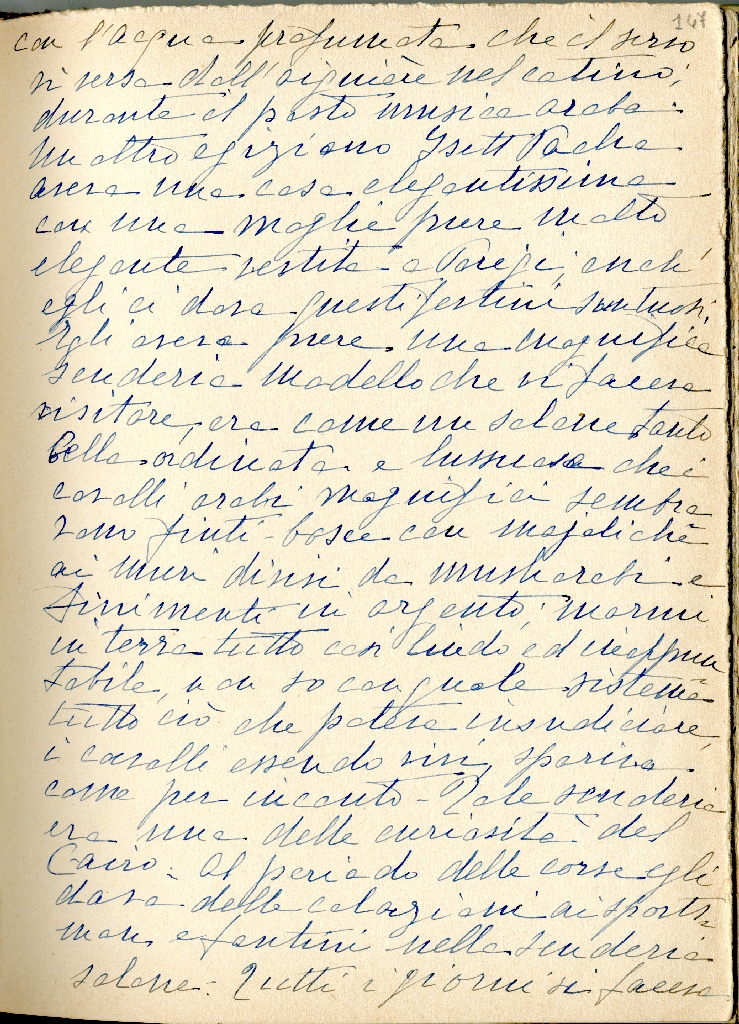 147
con l'acqua profumata che il servo
vi versa dall'aiguière nel catino;
durante il pasto musica araba.
Un altro egiziano Isett Pacha
aveva una casa elegantissima
con una moglie pure molto
elegante vestita a Parigi; anch'
egli ci dava questi festini suntuosi.
Egli aveva pure una magnifica
scuderia modello che vi faceva
visitare, era come un salone tanto
bella ordinata e lussuosa che i
cavalli arabi magnifici sembra
vano finti - boxe con majoliche
ai muri divisi da musharabi e
finimenti in argento; marmi
in terra tutto così lindo ed inappun
tabile, non so con quale sistema
tutto ciò che poteva insudiciare,
i cavalli essendo vivi, spariva
come per incanto - Tale scuderia
era una delle curiosità del
Cairo - Al periodo delle corse egli
dava delle colazioni ai sports-
man e fantini nella scuderia
salone - Tutti i giorni si faceva